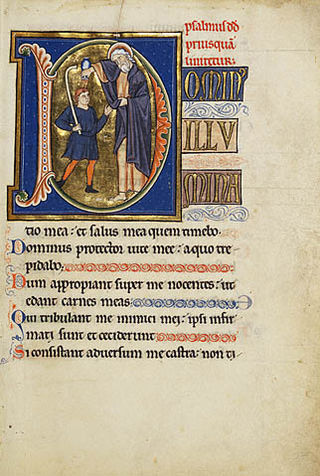 psalmus dd
priusquā
liniretur.
D
OMIN'
ILLV
MINA
tio mea: et salus mea quem timebo.
Dominus protector uite mee: a quo tre-
pidabo.
Dum appropiant super me nocentes: ut
edant carnes meas.
Qui tribulant me inimici mei: ipsi infir-
mati sunt et ceciderunt.
Si consistant aduersum me castra: non ti-